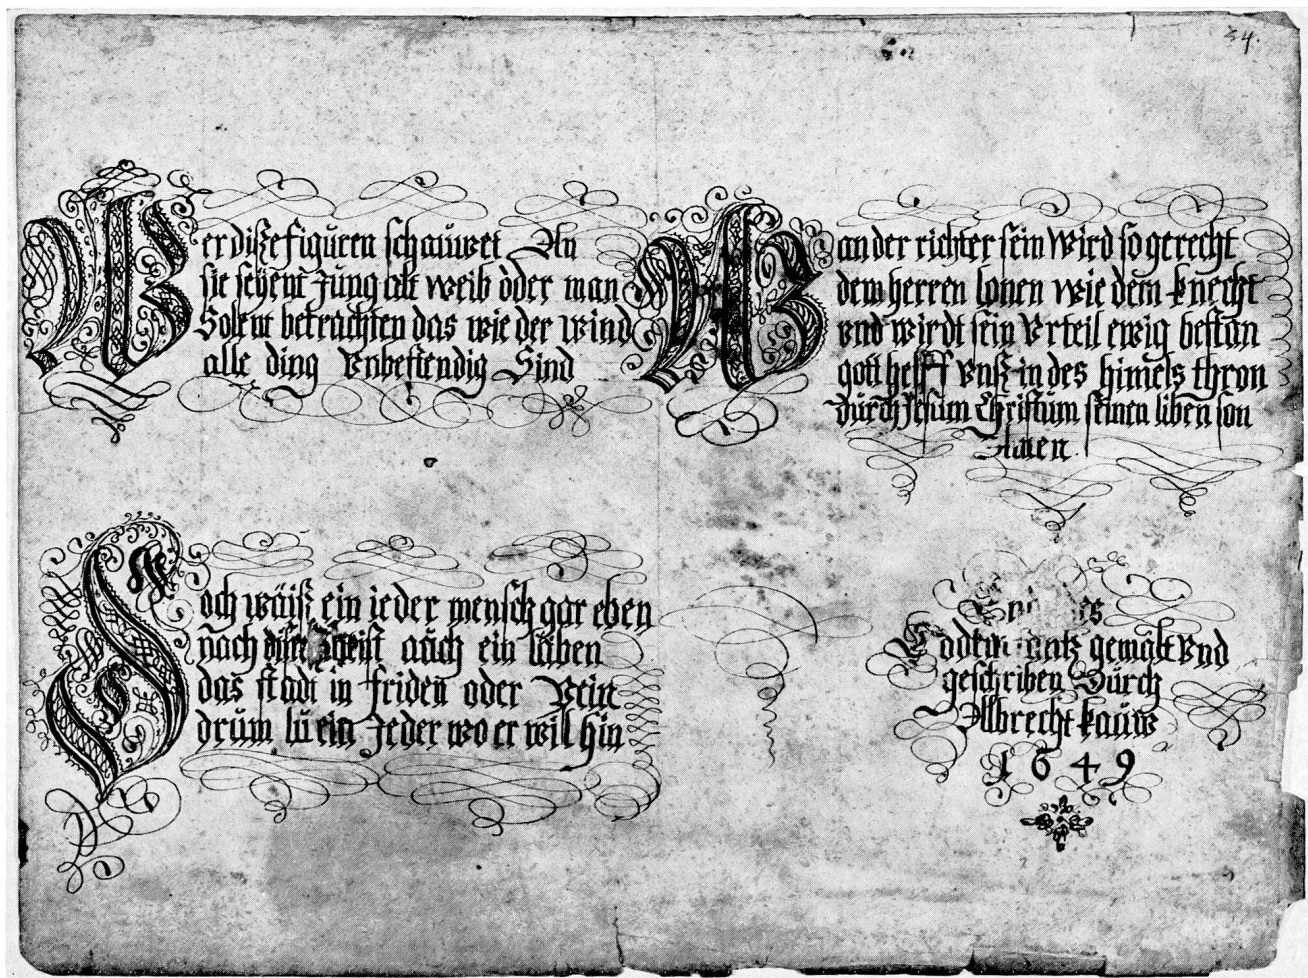 34.
Wer diße figuren schauwet An
sie seyent Jung alt weib oder man
Solent betrachten das wie der wind
alle ding Vnbestendig Sind
Wan der richter sein Wird so gerecht
dem herren lonen wie dem knecht
vnd wirdt sein Vrteil ewig bestan
gott helff Vnß in des himels thron
durch Jesum Christum seinen liben son
Amen.
Soch wäiß ein ieder mensch gar eben
nach diser Zeit ist auch ein läben
das stadt in friden oder Pein
drum lu ein Jeder wo er wil hin
Todten gemalt Vnd
geschriben Durch
Albrecht kauw
1649